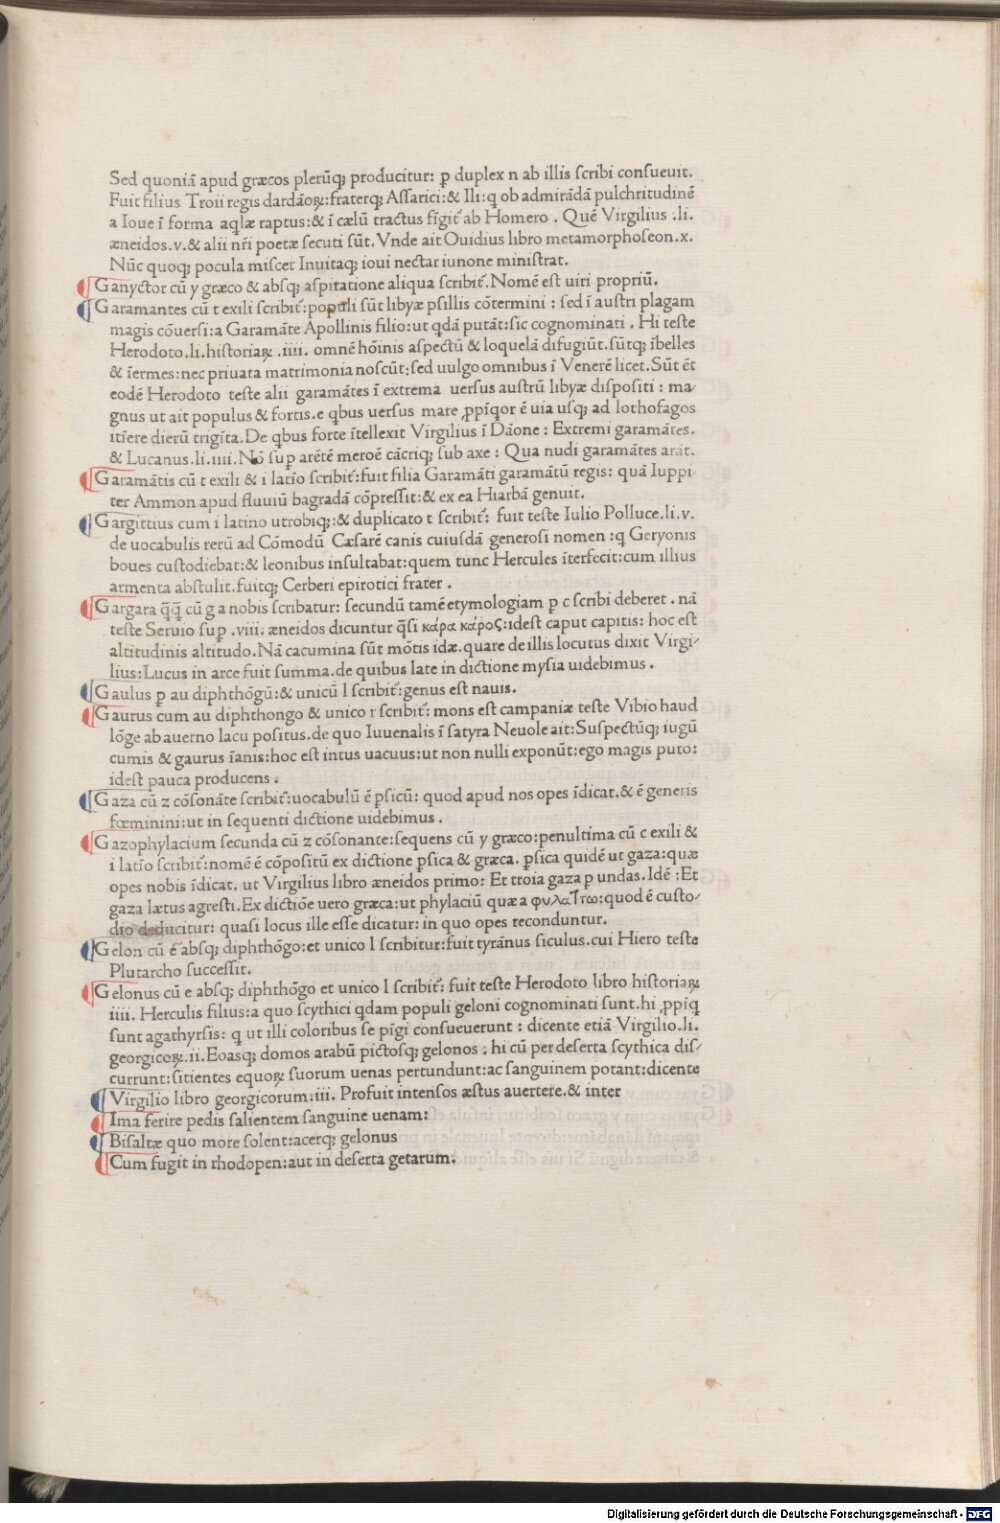 Sed quoniã apud græcos plerũqꝫ producitur: ꝑ duplex n ab illis ſcribi conſueuit.
Fuit filius Troii regis dardãoꝝ:fraterqꝫ Aſſarici:& Ili:q ob admirãdã pulchritudinẽ
a Ioue ĩ forma aqlæ raptus:& ĩ cælũ tractus fĩgit᷑ ab Homero . Quẽ Virgilius .li.
æneidos.v.& alii nr̃i poetæ ſecuti sũt. Vnde ait Ouidius libro metamorphoſeon.x.
Nũc quoqꝫ pocula miſcet Inuitaqꝫ ioui nectar iunone miniſtrat.
Ganyctor cũ y græco & abſqꝫ aſpitatione aliqua ſcribit᷑.Nomẽ eſt uiri propriũ.
Garamantes cũ t exili ſcribit᷑:populi ſũt libyæ pſillis cõtermini : ſed ĩ auſtri plagam
magis cõuerſi:a Garamãte Apollinis filio:ut qdã putãt:ſic cognominati . Hi teſte
Herodoto.li.hiſtoriaꝝ .iiii. omnẽ hõinis aſpectũ & loquelã difugiũt.ſũtqꝫ ĩbelles
& ĩermes:nec priuata matrimonia noſcũt:ſed uulgo omnibus ĩ Venerẽ licet.Sũt ẽt
eodẽ Herodoto teſte alii garamãtes ĩ extrema uerſus auſtrũ libyæ diſpoſiti : ma⸗
gnus ut ait populus & fortis.e qbus uerſus mare ꝓpĩqor ẽ uia uſqꝫ ad lothofagos
itĩere dierũ trigĩta.De qbus forte ĩtellexit Virgilius ĩ Dãone : Extremi garamãtes.
& Lucanus.li.iiii.Nõ ſuꝑ arẽtẽ meroẽ cãcriqꝫ ſub axe : Qua nudi garamãtes arãt.
Garamãtis cũ t exili & i latĩo ſcribit᷑:fuit filia Garamãti garamãtũ regis: quã Iuppi
ter Ammon apud fluuiũ bagradã cõpreſſit:& ex ea Hiarbã genuit.
Gargittius cum i latino utrobiqꝫ:& duplicato t ſcribit᷑: fuit teſte Iulio Polluce.li.v.
de uocabulis rerũ ad Cõmodũ Cæſarẽ canis cuiuſdã generoſi nomen :q Geryonis
boues cuſtodiebat:& leonibus inſultabat:quem tunc Hercules ĩterfecit:cum illius
armenta abſtulit.fuitqꝫ Cerberi epirotici frater .
Gargara q̃q̃ cũ g a nobis ſcribatur: ſecundũ tamẽ etymologiam ꝑ c ſcribi deberet . nã
teſte Seruio ſuꝑ .viii. æneidos dicuntur q̃ſi κάρα κάρος:ideſt caput capitis: hoc eſt
altitudinis altitudo.Nã cacumina ſũt mõtis idæ.quare de illis locutus dixit Virgi⸗
lius:Lucus in arce fuit ſumma.de quibus late in dictione myſia uidebimus .
Gaulus ꝑ au diphthõgũ:& unicũ l ſcribit᷑:genus eſt nauis.
Gaurus cum au diphthongo & unico r ſcribit᷑: mons eſt campaniæ teſte Vibio haud
lõge ab auerno lacu poſitus.de quo Iuuenalis ĩ ſatyra Neuole ait:Suſpectũqꝫ iugũ
cumis & gaurus ĩanis:hoc eſt intus uacuus:ut non nulli exponũt:ego magis puto:
ideſt pauca producens .
Gaza cũ z cõſonãte ſcribit᷑:uocabulũ ẽ ꝑſicũ: quod apud nos opes ĩdicat.& ẽ generis
fœminini:ut in ſequenti dictione uidebimus .
Gazophylacium ſecunda cũ z cõſonante:ſequens cũ y græco:penultima cũ c exili &
i latĩo ſcribit᷑:nomẽ ẽ cõpoſitũ ex dictione ꝑſica & græca. ꝑſica quidẽ ut gaza:quæ
opes nobis ĩdicat. ut Virgilius libro æneidos primo: Et troia gaza ꝑ undas.Idẽ :Et
gaza lætus agreſti.Ex dictiõe uero græca:ut phylaciũ quæ a φυλάττω:quod ẽ cuſto⸗
dio deducitur: quaſi locus ille eſſe dicatur: in quo opes reconduntur.
Gelon cũ e abſqꝫ diphthõgo:et unico l ſcribitur:fuit tyrãnus ſiculus.cui Hiero teſte
Plutarcho ſucceſſit.
Gelonus cũ e abſqꝫ diphthõgo et unico l ſcribit᷑: fuit teſte Herodoto libro hiſtoriaꝝ
iiii. Herculis filius:a quo ſcythici qdam populi geloni cognominati ſunt.hi ꝓpĩq
ſunt agathyrſis: q ut illi coloribus ſe pĩgi conſueuerunt : dicente etiã Virgilio.li.
georgicoꝝ.ii.Eoaſqꝫ domos arabũ pictoſqꝫ gelonos . hi cũ per deſerta ſcythica diſ⸗
currunt:ſitientes equoꝝ ſuorum uenas pertundunt:ac ſanguinem potant:dicente
Virgilio libro georgicorum.iii. Profuit intenſos æſtus auertere.& inter
Ima ferire pedis ſalientem ſanguine uenam:
Biſaltæ quo more ſolent:acerqꝫ gelonus
Cum fugit in rhodopen:aut in deſerta getarum.
Digitalisierung gefördert durch die Deutsche Forschungsgemeinschaft - DFG